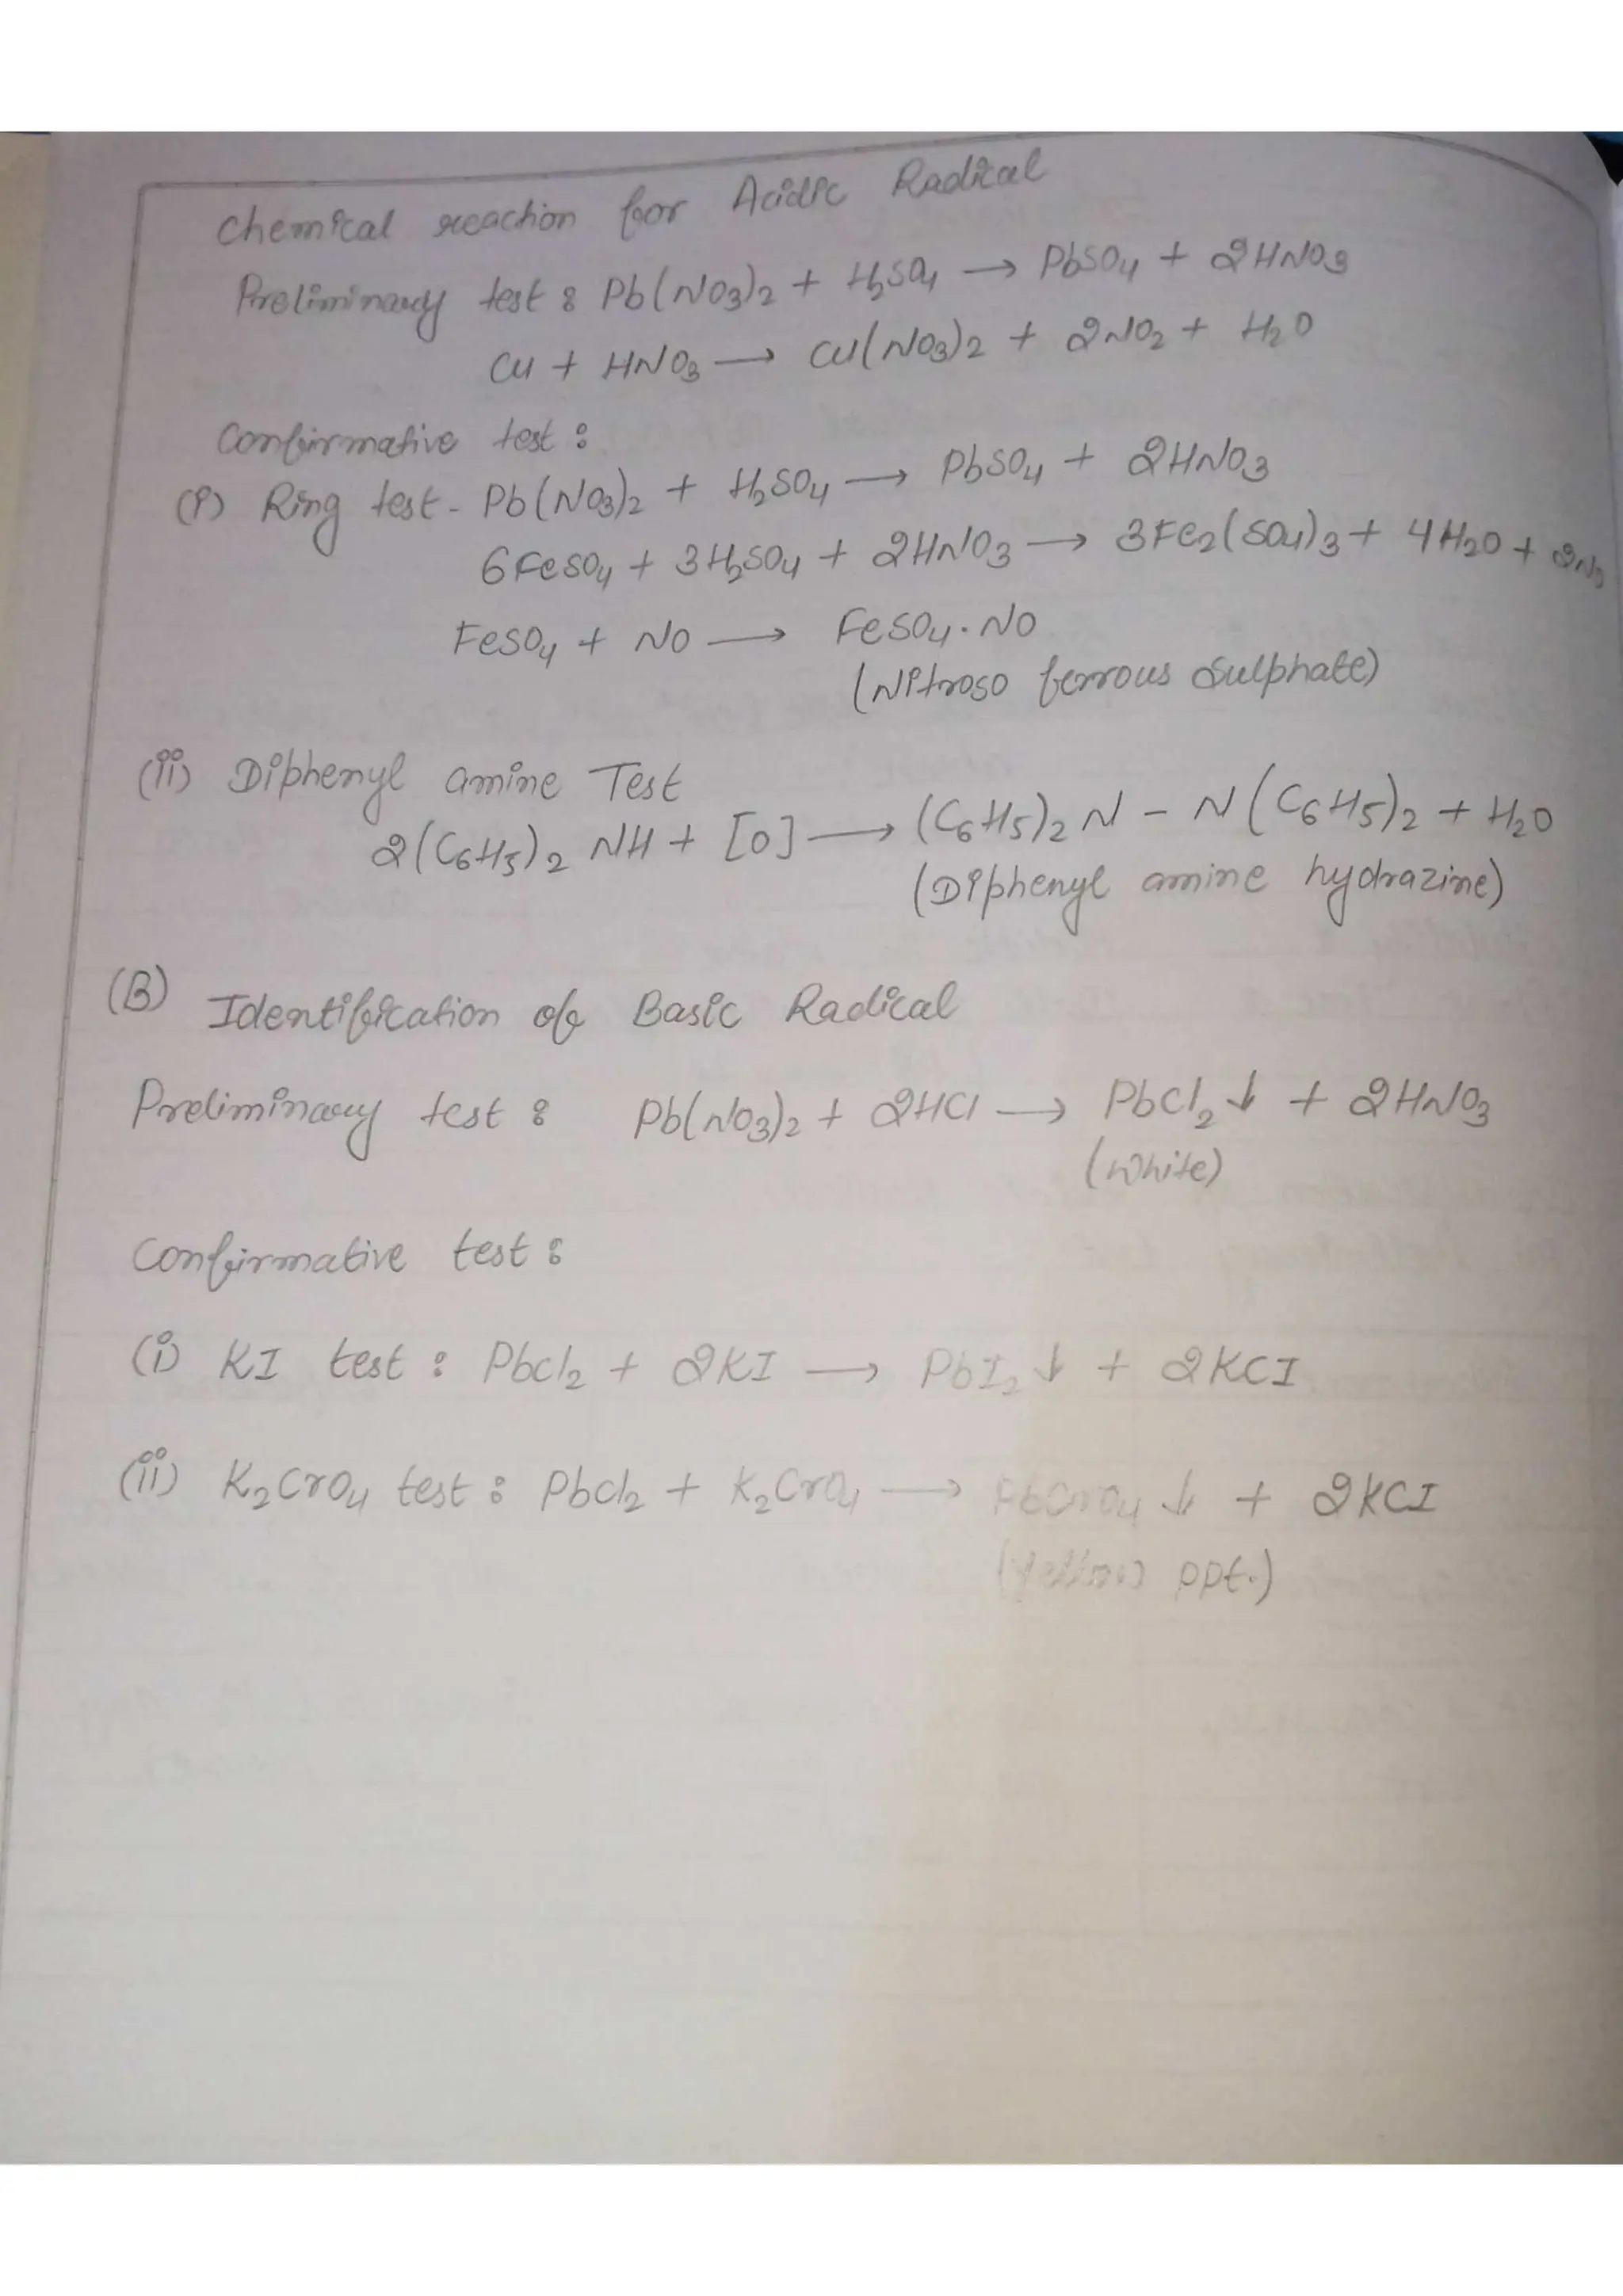 Chemical reaction for Acidic Radical
Preliminary test : Pb(NO3)2 + H2SO4 → PbSO4 + 2HNO3
Cu + HNO3 → Cu(NO3)2 + 2NO2 + H2O
Confirmative test :
(i) Ring test - Pb(NO3)2 + H2SO4 → PbSO4 + 2HNO3
6FeSO4 + 3H2SO4 + 2HNO3 → 3Fe2(SO4)3 + 4H2O + 2NO
FeSO4 + NO → FeSO4.NO
(Nitroso ferrous Sulphate)
(ii) Diphenyl amine Test
2(C6H5)2 NH + [O] → (C6H5)2 N - N(C6H5)2 + H2O
(Diphenyl amine hydrazine)
(B) Identification of Basic Radical
Preliminary test : Pb(NO3)2 + 2HCl → PbCl2↓ + 2HNO3
(White)
Confirmative test :
(i) KI test : PbCl2 + 2KI → PbI2↓ + 2KCI
(ii) K2CrO4 test : PbCl2 + K2CrO4 → PbCrO4↓ + 2KCI
(Yellow ppt.)